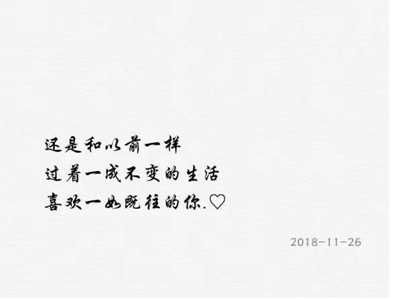 还是和以前一样
过着一成不变的生活
喜欢一如既往的你.♡
2018-11-26